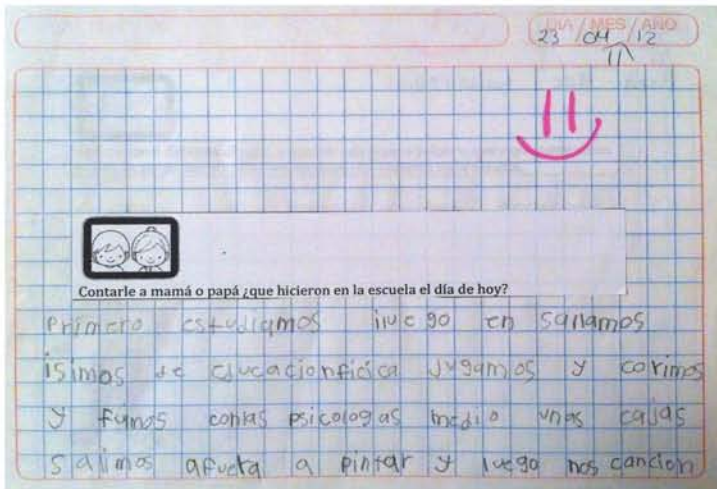 DIA / MES / AÑO
23 04 12
Contarle a mamá o papá ¿que hicieron en la escuela el día de hoy?
Primero estudiamos iluego en sallamos
isimos de educacionficica Jugamos y corimos
y fuimos conlas psicologas medio unas cajas
salimos afuera a pintar y luego nos cancion